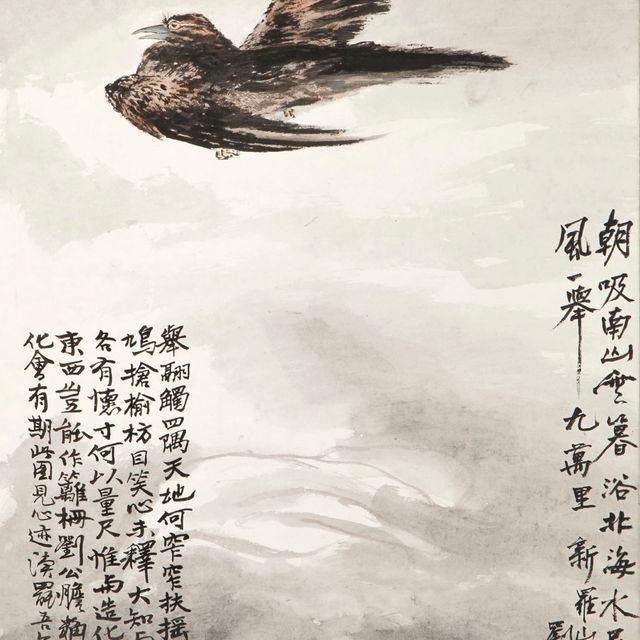 朝吸南山雲暮浴北海水
風一舉九萬里新羅
劉
舉翮觸四隅天地何窄窄扶搖
鳩搶榆枋目笑心未釋大知
各有懷寸何以量尺惟與造化
東西豈能作籬柵劉公
化會有期此圖見心迹